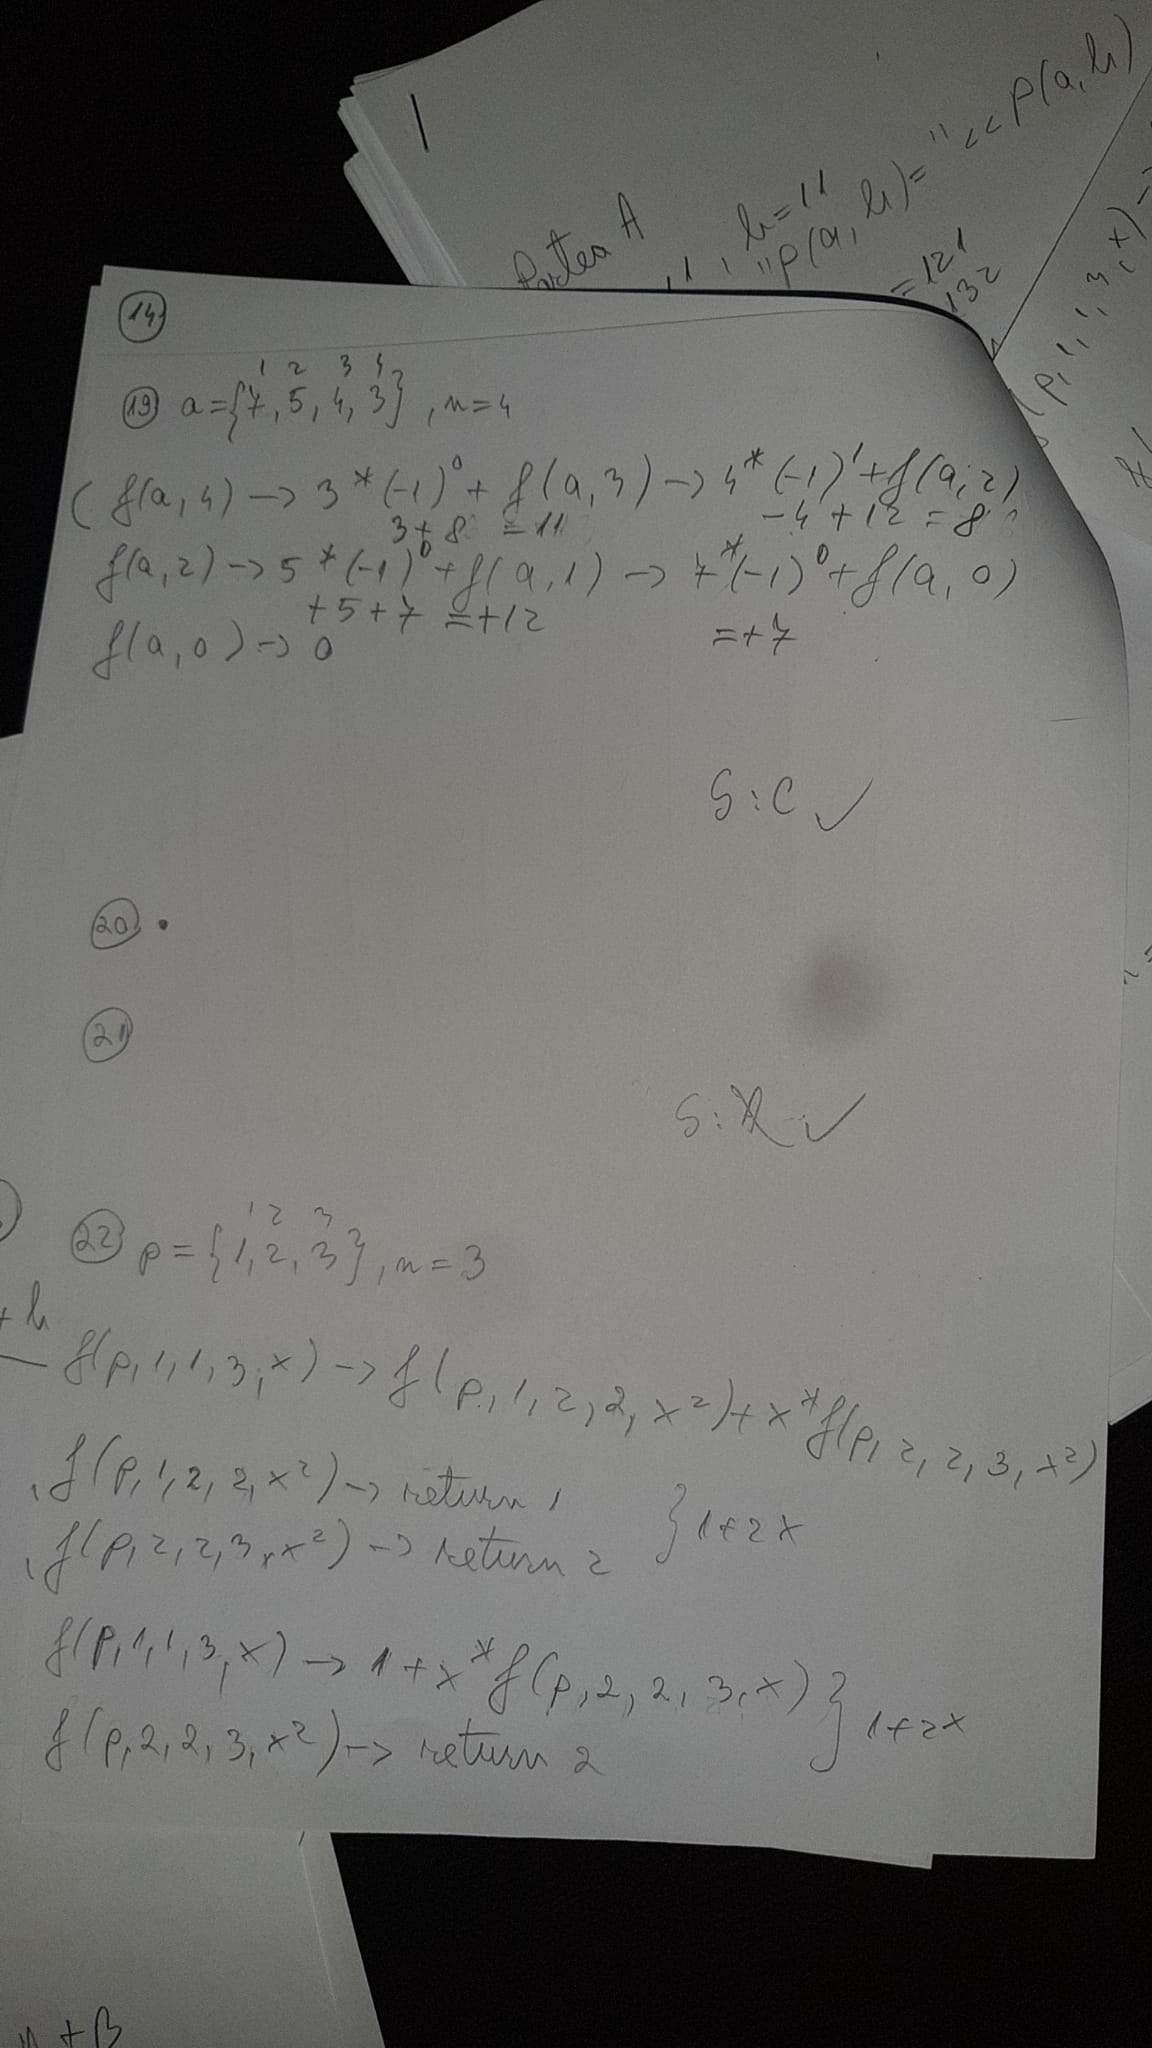 Partea A
b=11
"p(a,b)="<<p(a,b)
=121
132
p,1,1,3,x)
14
1 2 3 4
19 a={7,5,4,3}, n=4
f(a,4) -> 3*(-1)⁰+ f(a,3) -> 4*(-1)¹+f(a,2)
3+8 =11 -4+12=8
f(a,2) -> 5*(-1)⁰+f(a,1) -> 7*(-1)⁰+f(a,0)
+5+7=+12 =+7
f(a,0) -> 0
S:C ✓
20 .
21
S: ✓
1 2 3
22 p={1,2,3}, n=3
+b
f(p,1,1,3,x) -> f(p,1,2,2,x²)+x*f(p,2,2,3,x²)
f(p,1,2,2,x²) -> return 1
f(p,2,2,3,x²) -> return 2 } 1+2x
f(p,1,1,3,x) -> 1+x*f(p,2,2,3,x)
f(p,2,2,3,x²) -> return 2 } 1+2x
+B